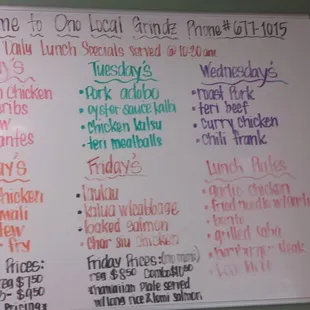 me to Ono Local Grindz Phone# 677-1015
Daily Lunch Specials served @ 10:30am
Tuesday's
• Pork adobo
• oyster sauce kalbi
• chicken katsu
• teri meatballs
Wednesday's
• roast Pork
• teri beef
• curry chicken
• chili frank
chicken
Friday's
• laulau
• kalua w/cabbage
• baked salmon
• Char siu chicken
Lunch Plates
• garlic chicken
• fried noodle w/
• bento
• grilled saba
• hamburger steak
• Loco Moco
chicken
fry
Prices:
$7.50
$9.50
Pricing
Friday Prices: (no mini)
reg $8.50 Combo $10.50
Hawaiian Plate served
w/long rice & lomi salmon